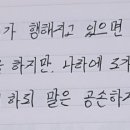 가 행해지고 있으면
을 하지만, 나라에 도가
하되 말은 공손하게